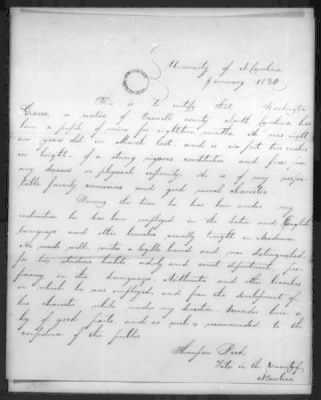 University of N Carolina
January 1840
This is to certify that Washington
Graves, a native of Caswell county North Carolina has
been a pupil of mine for eighteen months. He was eight
years old in March last, and is six feet two inches
in height. Of a strong vigorous constitution and free from
any disease or physical infirmity. He is of very respec
table family connexions and good moral character
During the time he has been under my
instruction he has been employed in the latin and English
languages and other branches usually taught in Academies.
He reads well, writes a legible hand and was distinguished
for his studious habits, orderly and correct deportment, pro
ficiency in the languages, Arithmetic and other branches
in which he was employed, and from the development of
his character while under my direction I consider him a
boy of good parts, and as such is recommended to the
of the public
Thompson
in the University of
N Carolina